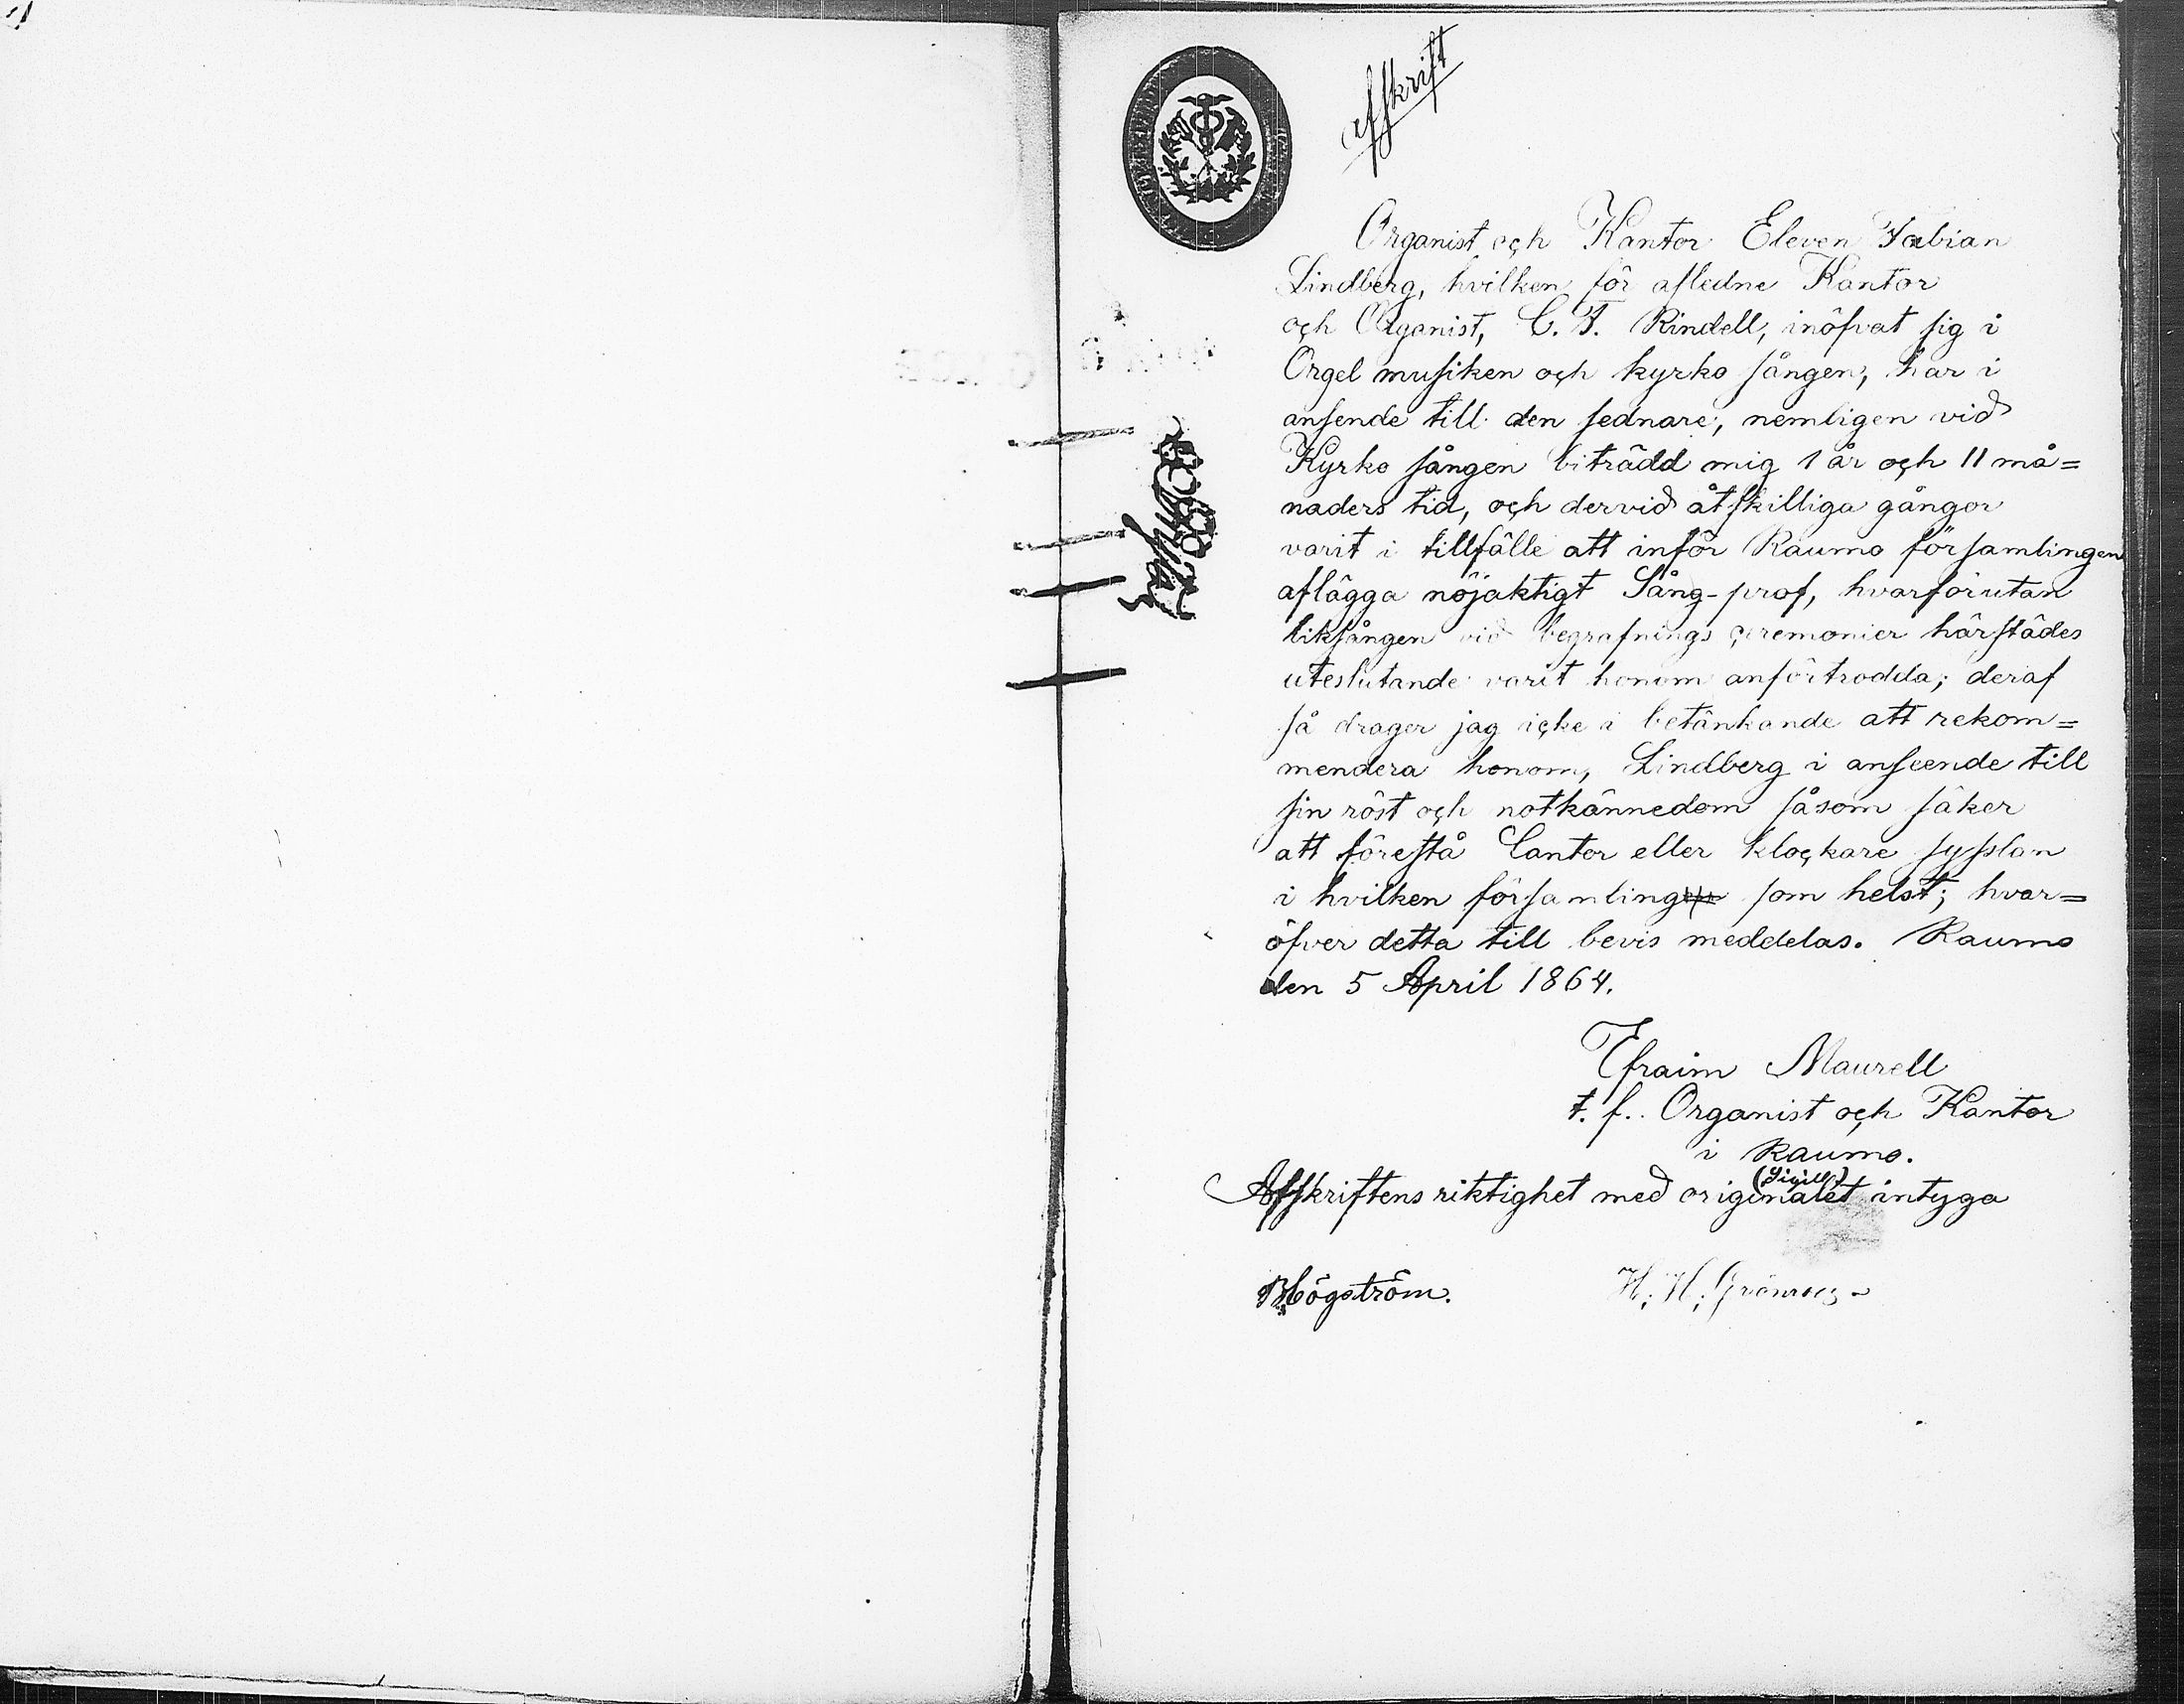 Afskrift
Organist och Kantor Eleven Fabian
Lindberg, hvilken för afledne Kantor
och Organist, C. F. Rindell, inöfvat sig i
Orgel musiken och kyrko sången, har i
ansende till den sednare, nemligen vid
Kyrko sången biträdd mig 1 år och 11 må=
naders tid, och dervid åtskilliga gångor
varit i tillfälle att inför Raumo församlingen
aflägga nöjaktigt Sång-prof, hvarförutan
liksången vid begrafnings ceremonier härstädes
uteslutande varit honom anförtrodda; deraf
så drager jag icke i betänkande att rekom=
mendera honom, Lindberg i anseende till
sin röst och notkännedom såsom säker
att förestå Cantor eller klockare sysslan
i hvilken församling som helst; hvar=
öfver detta till bevis meddelas. Raumo
den 5 April 1864.
Efraim Maurell
t. f. Organist och Kantor
i Raumo.
(Sigill)
Afskriftens riktighet med originalet intyga
Högström. H. H. Grönroos